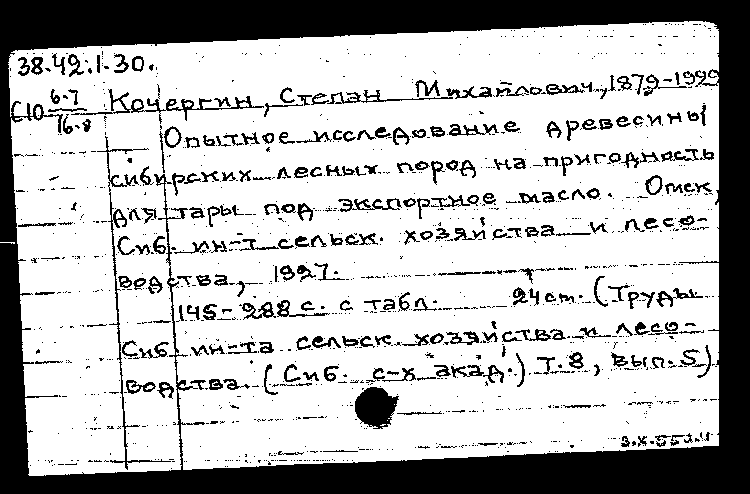 38.42.1.30.
C10 6.7/16.8 Кочергин, Степан Михайлович, 1879-1929
Опытное исследование древесины
сибирских лесных пород на пригодность
для тары под экспортное масло. Омск,
Сиб. ин-т сельск. хозяйства и лесо-
водства, 1927.
145-288 с. с табл. 24 cm. (Труды
Сиб. ин-та сельск. хозяйства и лесо-
водства. (Сиб. с-х акад.) Т.8, вып.5).